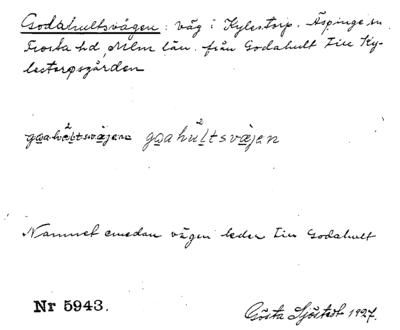 Godahultsvägen: väg i Kylestorp. Äspinge sn
Frosta hd, Mlm län. från Godahult till Ky-
lestorpsgården
goahultsväjen
Namnet emedan vägen leder till Godahult
Nr 5943.
Gösta Sjöstedt 1927.